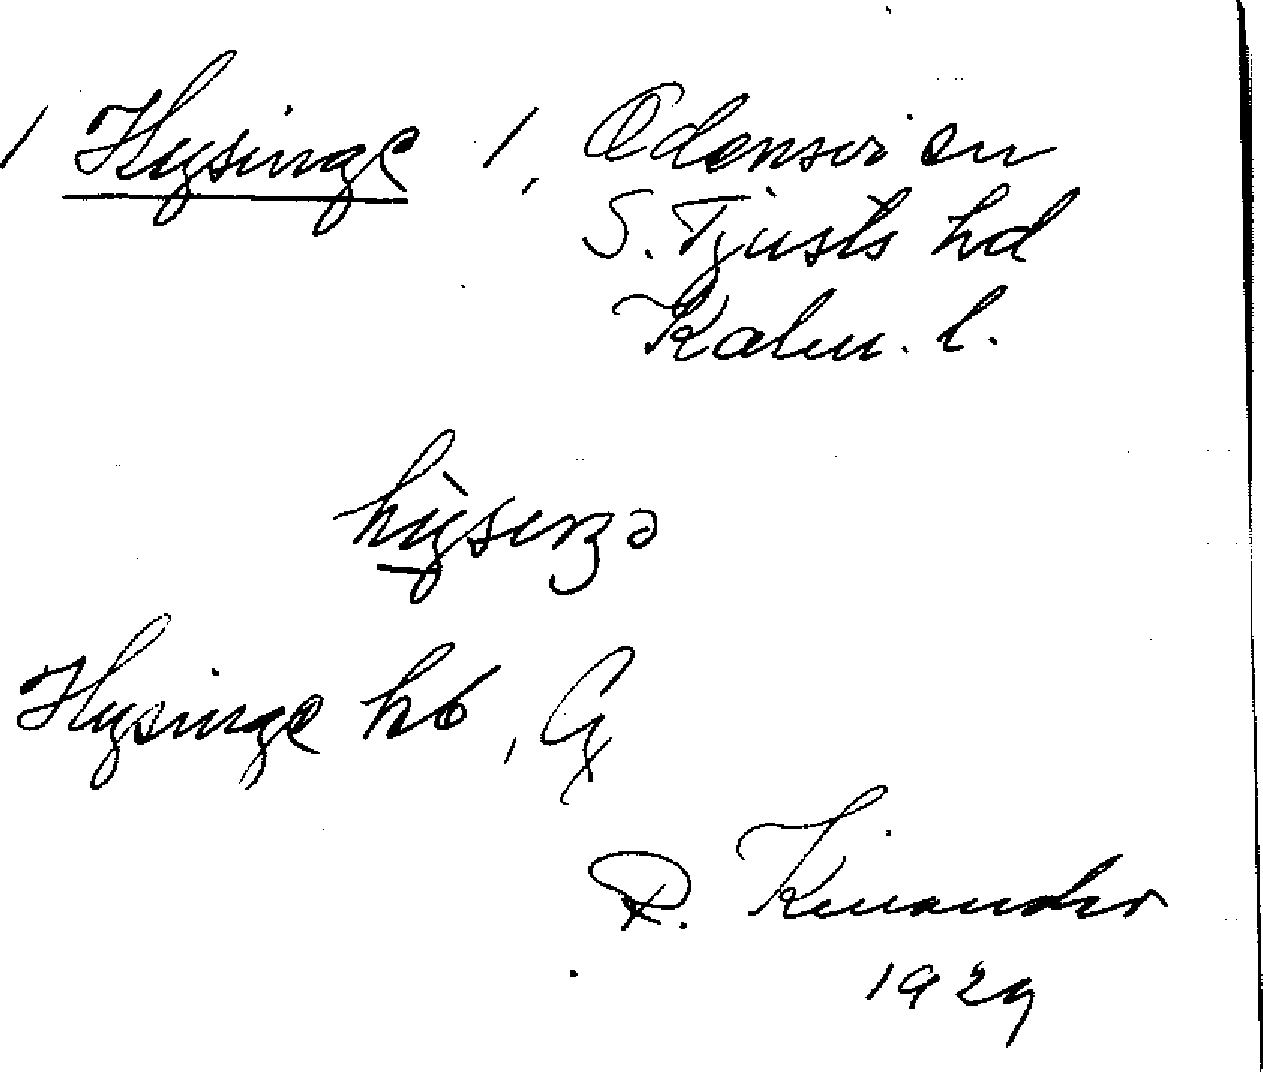 / Hysinge /, Odensvi sn
S. Tjusts hd
Kalm. l.
hỳsıŋə
Hysinge hb, Gx
R. Kinander
1929